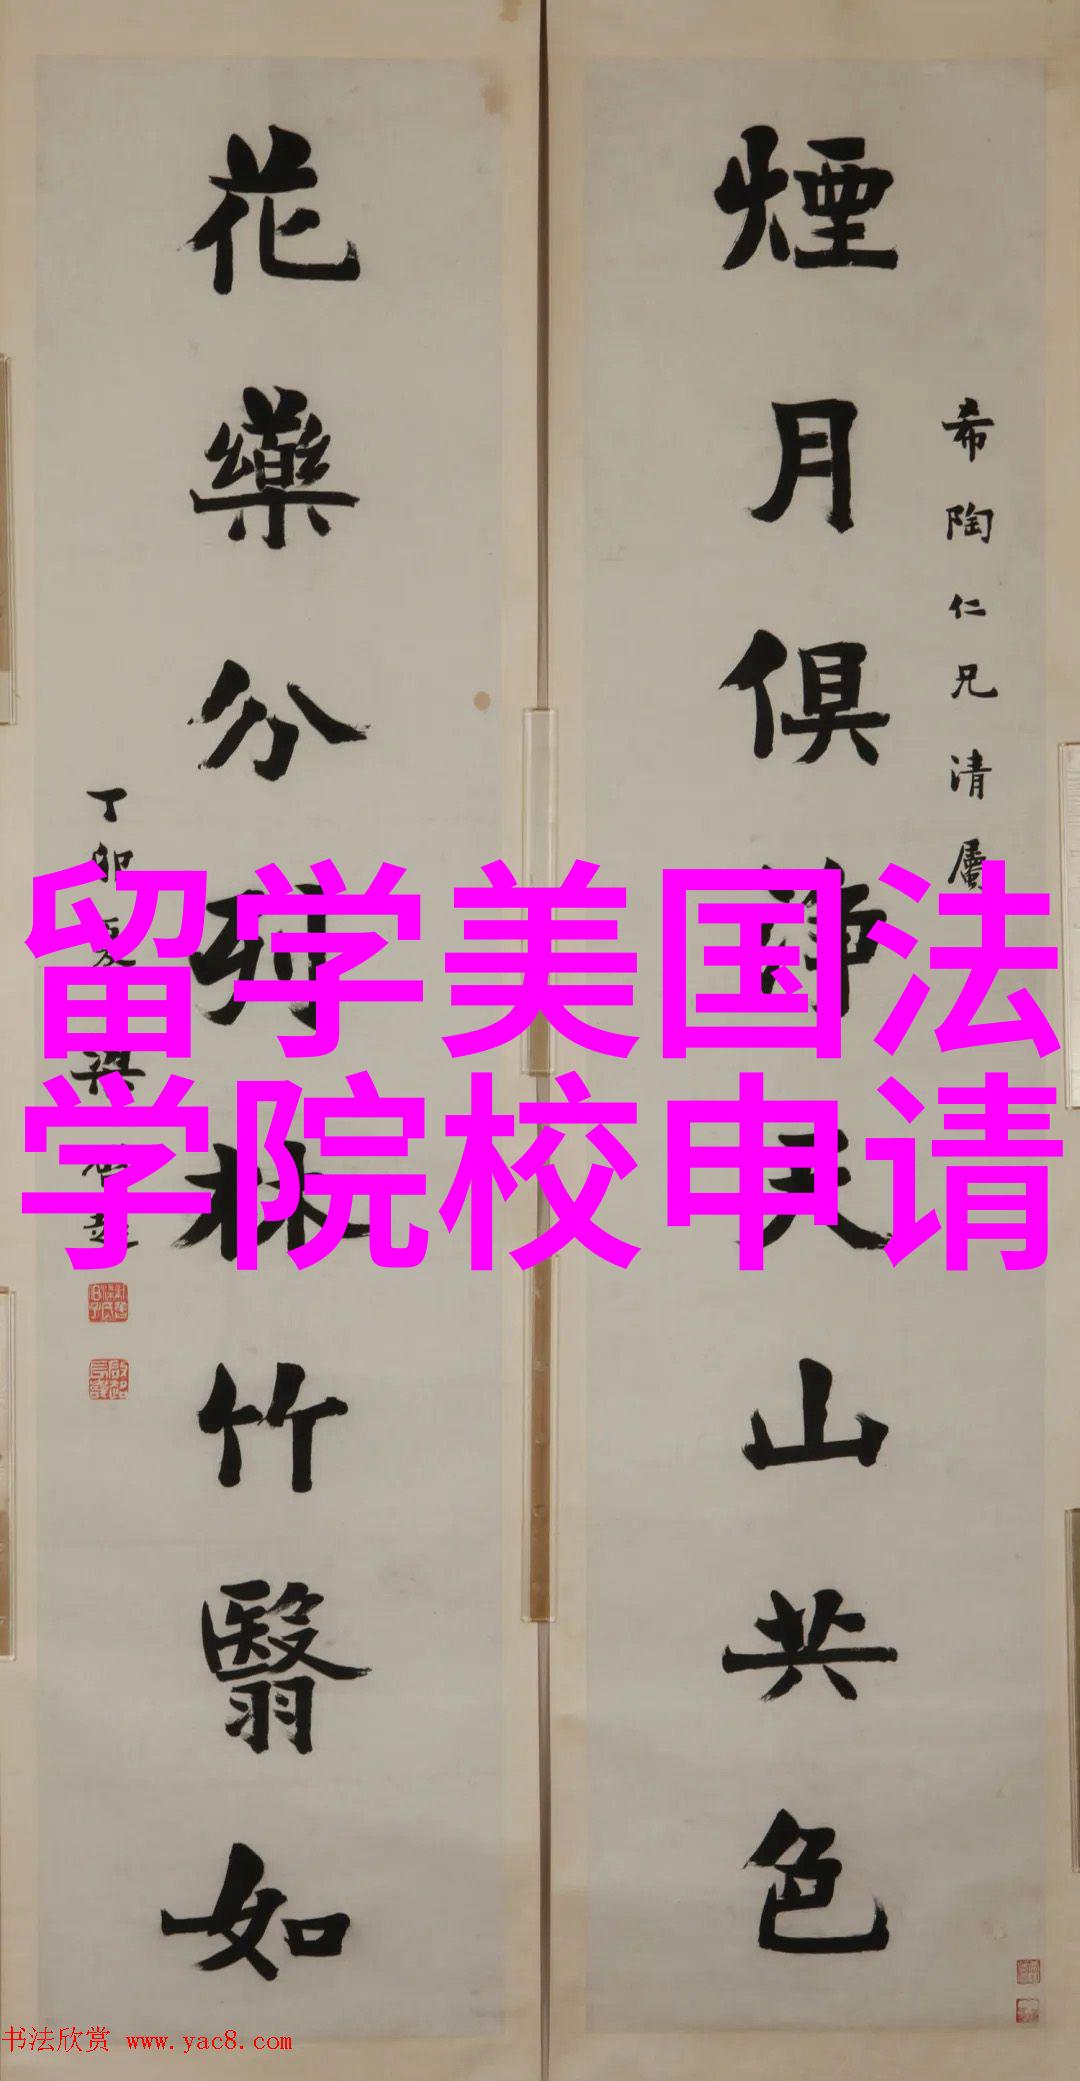 煙月俱淨天山共色
希陶仁兄清屬
花藥分列林竹翳如
丁卯夏梁啓超
留学美国法
学院校申请
书法欣赏 www.yac8.com